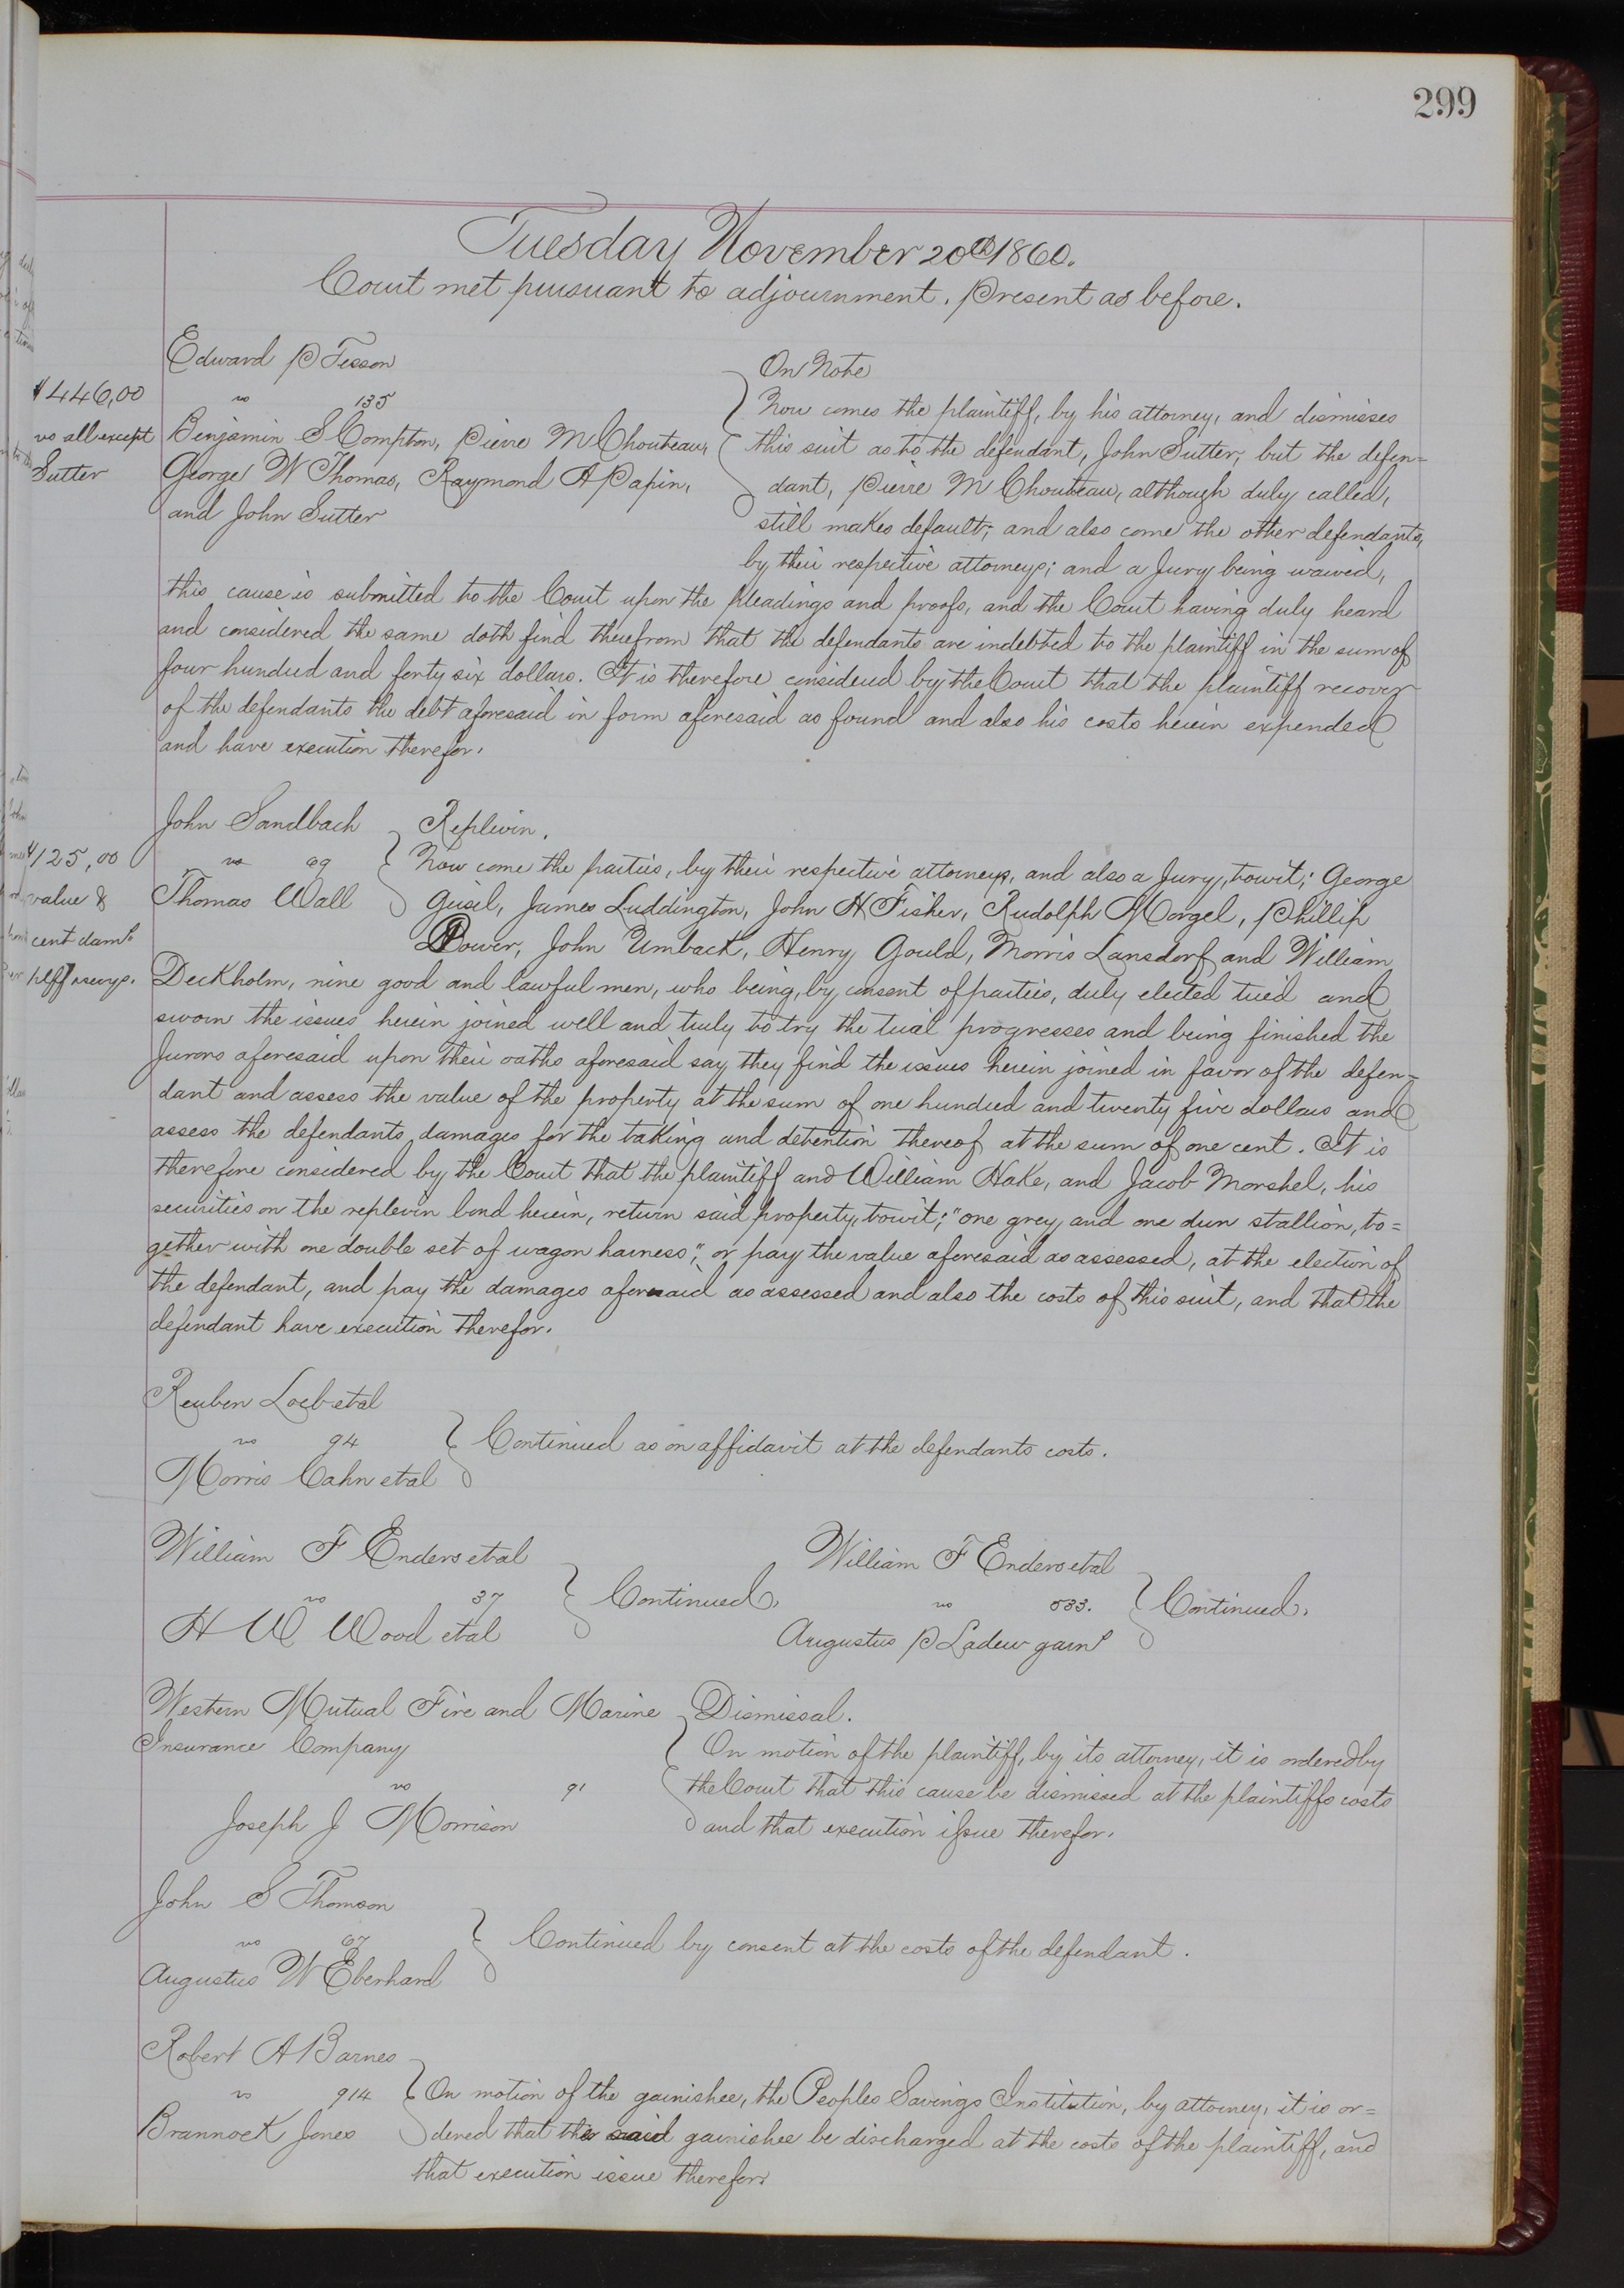 299
Tuesday November 20th 1860.
Court met pursuant to adjournment. Present as before.
Edward P Tesson
vs 135
Benjamin S Compton, Pierre M Chouteau,
George W Thomas, Raymond A Papin,
and John Sutter
$446,00
vs all except
Sutter
On Note
Now comes the plaintiff, by his attorney, and dismisses
this suit as to the defendant, John Sutter; but the defen=
dant, Pierre M Chouteau, although duly called,
still makes default; and also come the other defendants,
by their respective attorneys; and a Jury being waived,
this cause is submitted to the Court upon the pleadings and proofs, and the Court having duly heard
and considered the same doth find therefrom that the defendants are indebted to the plaintiff in the sum of
four hundred and forty six dollars. It is therefore considered by the Court that the plaintiff recover
of the defendants the debt aforesaid in form aforesaid as found and also his costs herein expended
and have execution therefor.
John Sandbach
vs 99
Thomas Wall
$125,00
value &
cent damgs
plff & secys.
Replevin.
Now come the parties, by their respective attorneys, and also a Jury, towit; George
Geisel, James Luddington, John H Fisher, Rudolph Morgel, Phillip
Power, John Umback, Henry Gould, Morris Lansdorf and William
Deckholm, nine good and lawful men, who being, by consent of parties, duly elected tried and
sworn the issues herein joined well and truly to try the trial progresses and being finished the
Jurors aforesaid upon their oaths aforesaid say they find the issues herein joined in favor of the defen=
dant and assess the value of the property at the sum of one hundred and twenty five dollars and
assess the defendants damages for the taking and detention thereof at the sum of one cent. It is
therefore considered by the Court that the plaintiff and William Hake, and Jacob Morshel, his
securities on the replevin bond herein, return said property, towit; "one grey, and one dun stallion, to=
gether with one double set of wagon harness;" or pay the value aforesaid as assessed, at the election of
the defendant, and pay the damages aforesaid as assessed and also the costs of this suit, and that the
defendant have execution therefor.
Reuben Loeb etal
vs 94
Morris Cahn etal
Continued as on affidavit at the defendants costs.
William F Enders etal
vs 37
H W Wood etal
Continued.
William F Enders etal
vs 533.
Augustus P Ladew garns
Continued.
Western Mutual Fire and Marine
Insurance Company
vs 91
Joseph J Morrison
Dismissal.
On motion of the plaintiff, by its attorney, it is ordered by
the Court that this cause be dismissed at the plaintiffs costs
and that execution issue therefor.
John S Thomson
vs 67
Augustus W Eberhard
Continued by consent at the costs of the defendant.
Robert A Barnes
vs 914
Brannock Jones
On motion of the garnishee, the Peoples Savings Institution, by attorney, it is or=
dered that the said garnishee be discharged at the costs of the plaintiff, and
that execution issue therefor.